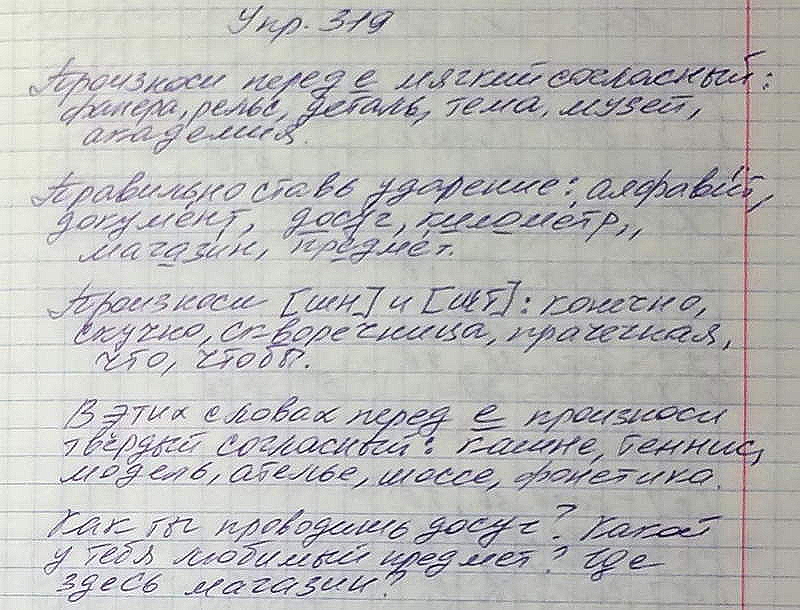 Упр. 319
Произноси перед е мягкий согласный:
фанера, рельс, деталь, тема, музей,
академия.
Правильно ставь ударение: алфавит,
документ, досуг, километр,,
магазин, предмет.
Произноси [шн] и [шт]: конечно,
скучно, скворечница, прачечная,
что, чтобы.
В этих словах перед е произноси
твёрдый согласный: кашне, теннис,
модель, ателье, шоссе, фонетика.
Как ты проводишь досуг? Какой
у тебя любимый предмет? Где
здесь магазин?